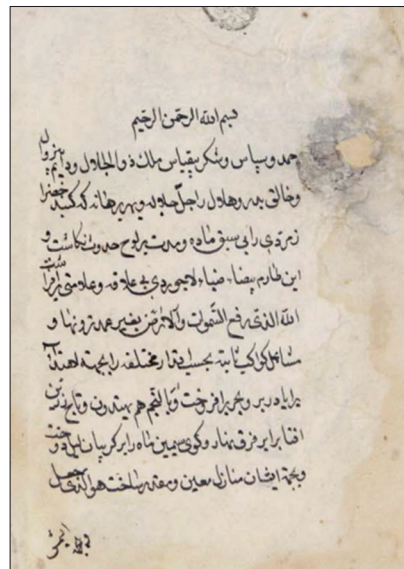 بسم الله الرحمن الرحیم
حمد و سپاس و شکر بیقیاس ملک ذو الجلال و دایم بیزوال
و خالق بدر و هلال را جل جلاله و برهانه که کنبد خضرا
زمردی را بی سبق ماده و مدت بر لوح حدوث نکاشت و
این طارم بیضاء ضیاء لاجوردی بی علاقه و علامتی برافراشت
الله الذی رفع السموات والارض بغیر عمد ترونها و
مشاعل کواکب ثابته بحسب اقدار مختلفه را بجهة اهتداء
برایا در بر و بحر برافروخت و بالنجم هم یهتدون و تاج زرین
افتاب را بر فرق نهار و کوی سیمین ماه را بر کریبان لیل دوخت
و بجهة ایشان منازل معین و مقدر ساخت هو الذی جعل